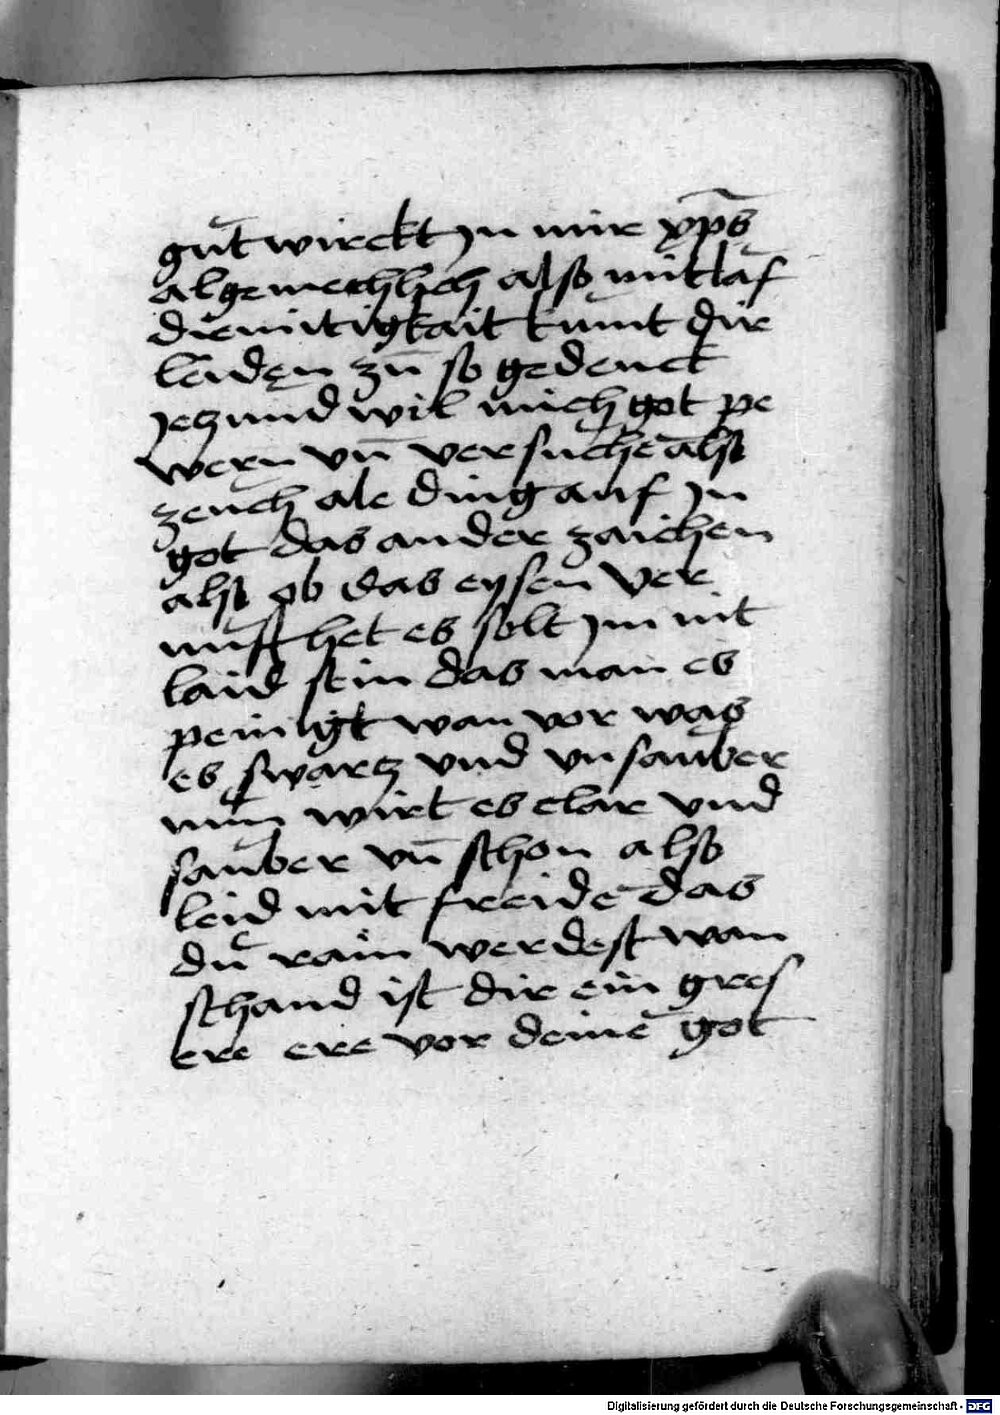 gůt wirckt jn mir xp̄s
algemechlich also mit laſ
diemitigkait kumt dir
laiden zů so gedenck
jetzund wil mich got pe
weren vn̄ versuchē alſt
zeuch ale ding auf jn
got das ander zaichen
alſt ob das eysen ver
nuft het es solt jm nit
laid sein das man es
peinigt wan vor was
es swartz vnd vnsauber
nun wirt es clar vnd
sauber vn̄ schon also
leid mit freide das
du rain werdest wan
schand ist dir ein gres
ere ere vor deinē got
Digitalisierung gefördert durch die Deutsche Forschungsgemeinschaft - DFG